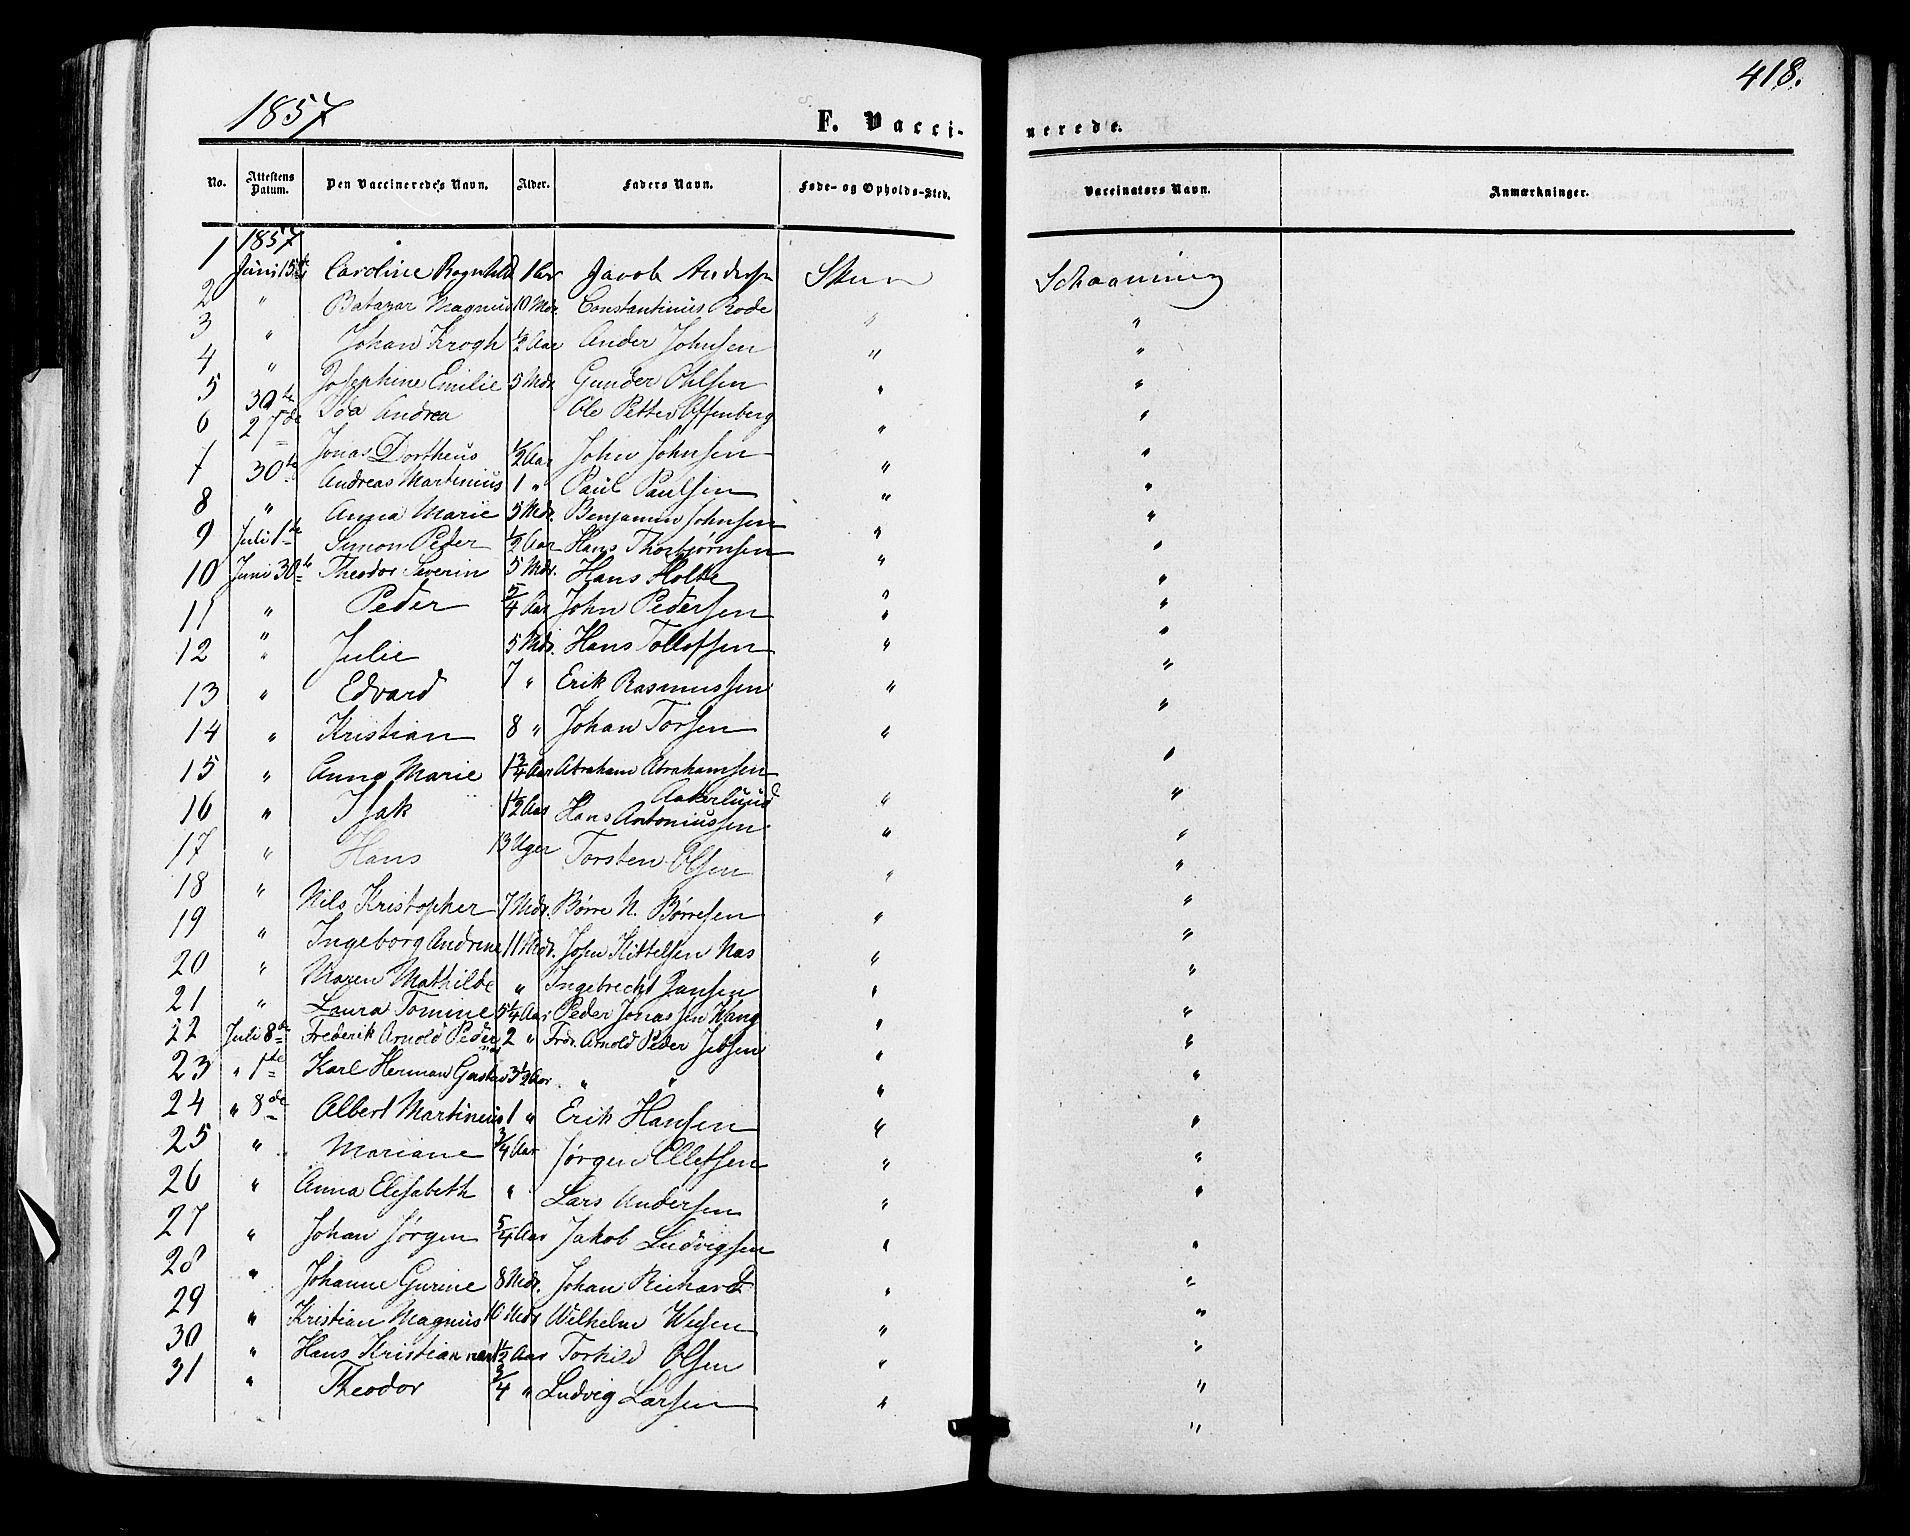 1857
418.
F. Vacci- nerede.
No. Attestens Datum. Den Vaccineredes Navn. Alder. Faders Navn. Føde- og Opholds-Sted. Vaccinators Navn. Anmærkninger.
1857
1 Juni 15de Caroline Ragnhild 1 Aar Jacob Anders Schaanning
2 " Batazar Magnus 10 Mdr. Constantinus Rode " "
3 " Johan Krogh 1/2 Aar Ander Johnsen " "
4 " Josephine Emilie 5 Mdr. Gunder Ohlsen " "
5 30te Ida Andrea Ole Petter Offenberg " "
6 27de Jonas Dortheus 1/2 Aar John Johnsen " "
7 30te Andreas Martinius 1 " Paul Paulsen " "
8 " Anna Marie 5 Mdr. Benjamin Johnsen " "
9 Juli 1te Simon Peder 1/2 Aar Hans Thorbjørnsen " "
10 Juni 30te Theodor Severin 5 Mdr. Hans Holte " "
11 " Peder 5/4 Aar John Pedersen " "
12 " Julie 5 Mdr. Hans Tollofsen " "
13 " Edvard 7 " Erik Rasmussen " "
14 " Kristian 8 " Johan Torsen " "
15 " Anna Marie 1 3/4 Aar Abraham Abrahamsen Aakerlund " "
16 " Isak 1 1/2 Aar Hans Antoniussen " "
17 " Hans 13 Uger Torsten Olsen " "
18 " Nils Kristopher 7 Mdr. Børre N. Børresen " "
19 " Ingeborg Andrine 11 Mdr. John Kittelsen Nas " "
20 " Maren Mathilde " Ingebrecht Jansen " "
21 " Laura Tomine 5 1/4 Aar Peder Jonassen Wang " "
22 Juli 8de Frederik Arnold Peder 2 " Frdr. Arnold Peder Jebsen " "
23 " 1te Karl Herman Gustav 3 1/2 Aar " " " "
24 " 8de Albert Martinius 1 " Erik Hansen " "
25 " Mariane 3/4 Aar Jørgen Elletsen " "
26 " Anna Elisabeth " Lars Andersen " "
27 " Johan Jørgen 5/4 Aar Jakob Ludvigsen " "
28 " Johanne Gurine 8 Mdr. Johan Richard " "
29 " Kristian Magnus 10 Mdr. Wilhelm " "
30 " Hans Kristian 1 1/2 Aar Torkild Olsen " "
31 " Theodor 3/4 " Ludvig Larsen " "